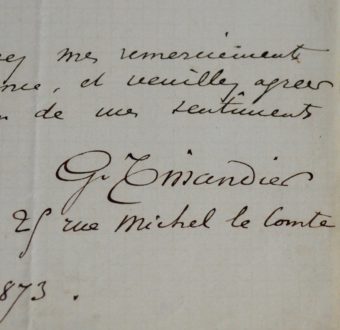 mes remerciements
et veuillez agréer
de mes sentiments
G. Tissandier
25 rue Michel le Comte
1873.